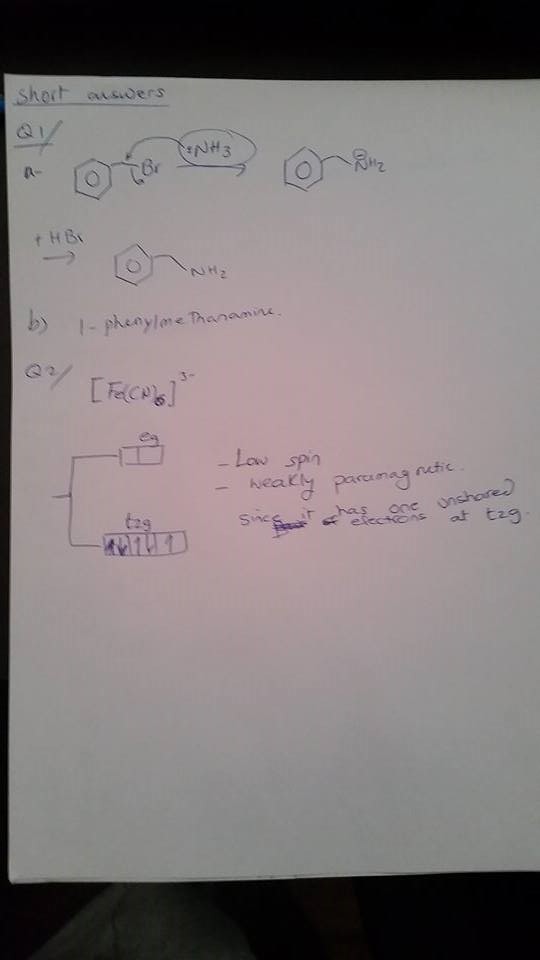 Short answers
Q1/
a- Br :NH3 NH2
+ HBr
NH2
b) 1-phenylmethanamine.
Q2/
[Fe(CN)6]3-
eg
- Low spin
- weakly paramagnetic.
t2g
since it has one unshared
electrons at t2g.